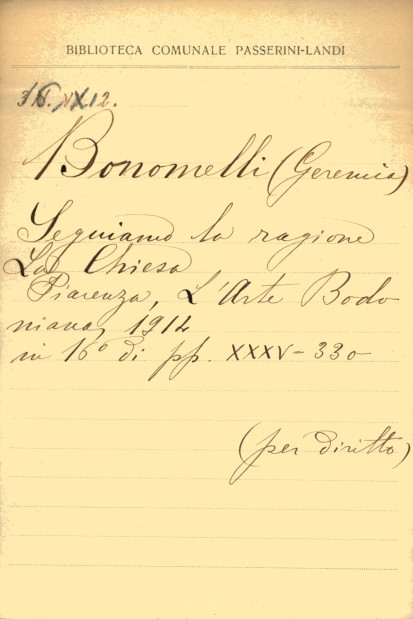 BIBLIOTECA COMUNALE PASSERINI-LANDI
Bonomelli (Geremia)
Seguiamo la ragione
La Chiesa
Piacenza, L'Arte Bodo
niana, 1914
in 16° di pp. XXXV-330
(per diritto)